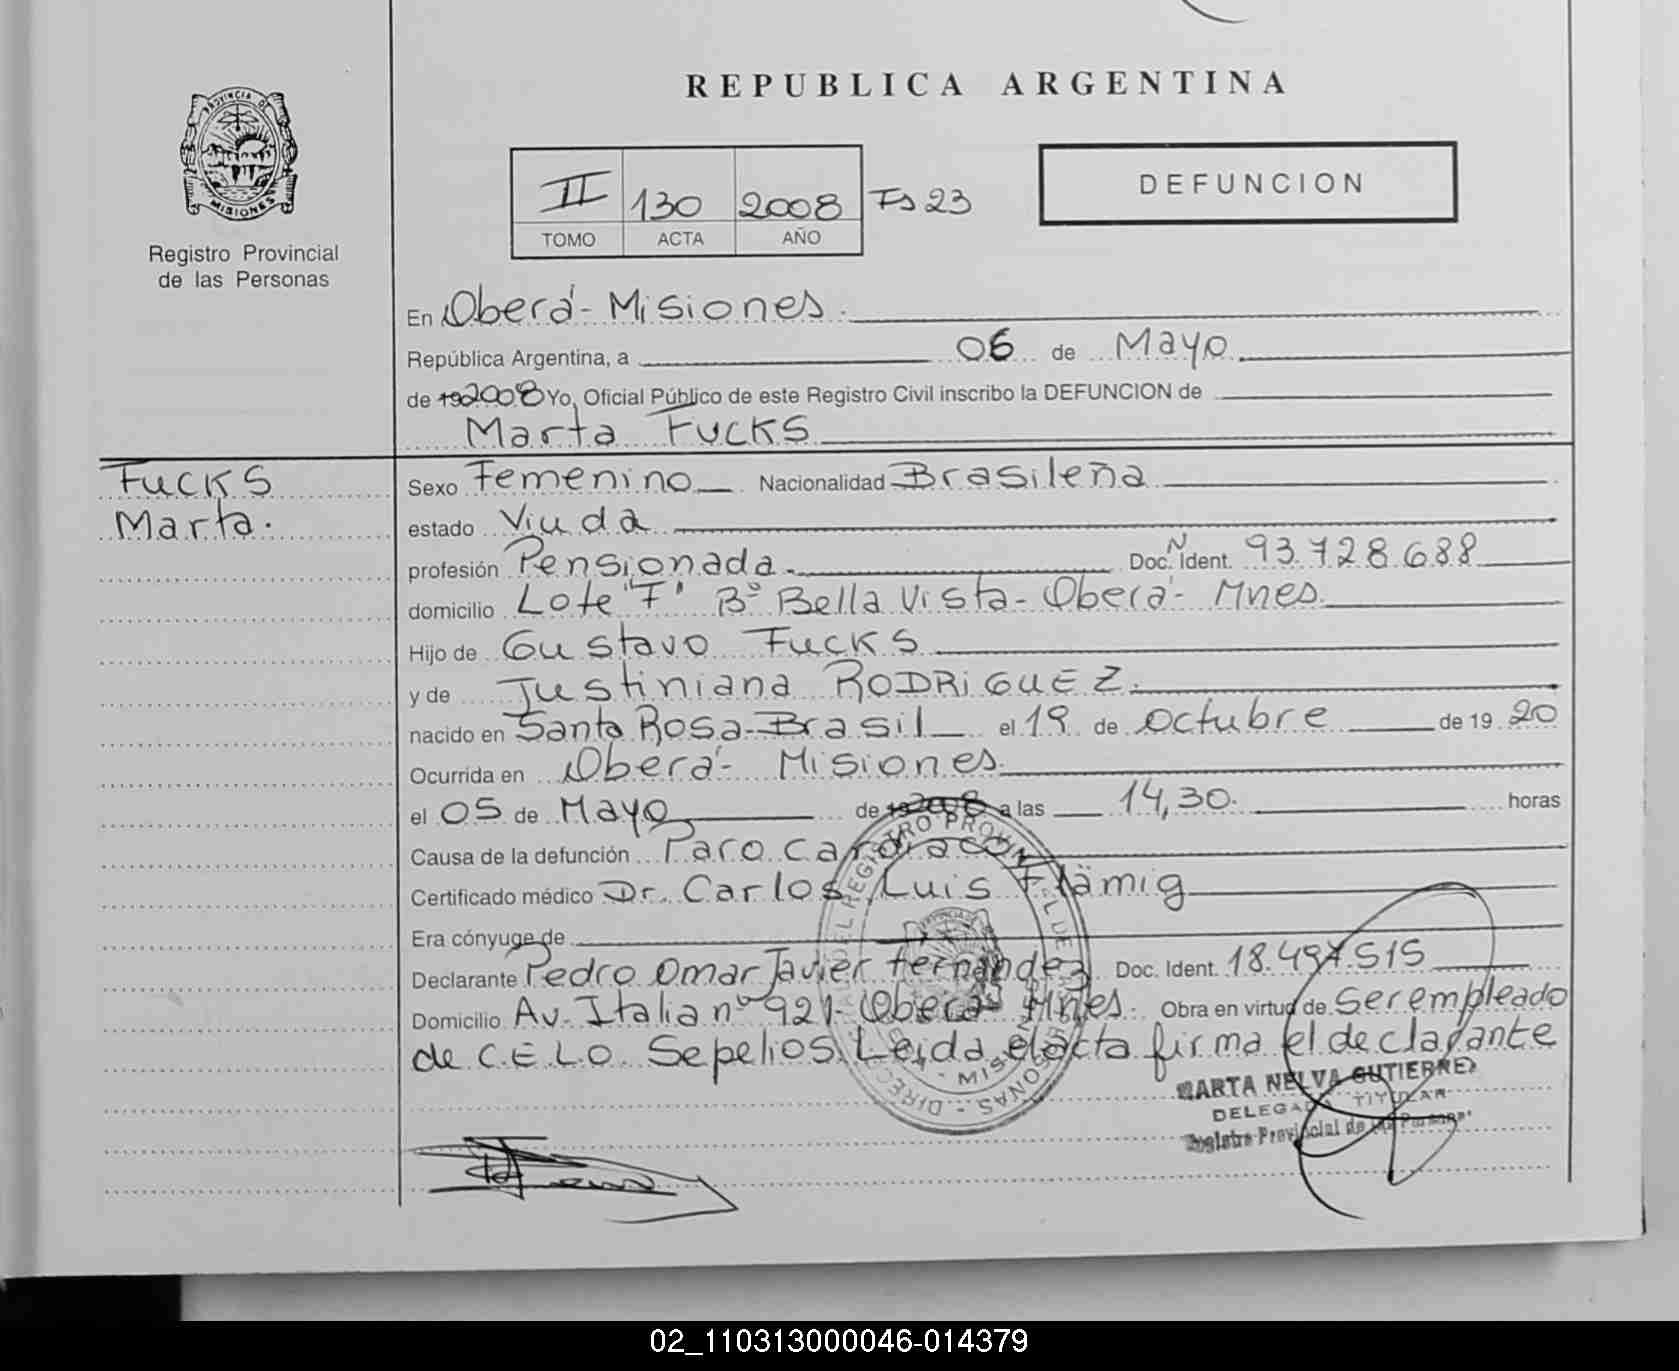 REPUBLICA ARGENTINA
PROVINCIA DE
MISIONES
Registro Provincial
de las Personas
II 130 2008 Fs 23
TOMO ACTA AÑO
DEFUNCION
En Oberá - Misiones.
República Argentina, a 06 de Mayo
de 192008 Yo, Oficial Público de este Registro Civil inscribo la DEFUNCION de
Marta Fucks
Fucks
Marta.
Sexo Femenino Nacionalidad Brasileña
estado Viuda
profesión Pensionada. Doc. N Ident. 93.728.688
domicilio Lote "7" Bº Bella Vista - Oberá - Mnes.
Hijo de Gustavo Fucks
y de Justiniana RODRIGUEZ.
nacido en Santa Rosa - Brasil el 19 de octubre de 19 20
Ocurrida en Oberá - Misiones.
el 05 de Mayo de 192008 a las 14,30. horas
Causa de la defunción Paro cardíaco
Certificado médico Dr. Carlos Luis Flämig
Era cónyuge de
Declarante Pedro Omar Javier Fernández Doc. Ident. 18.497.515
Domicilio Av. Italia nº 921 - Oberá - Mnes. Obra en virtud de Ser empleado
de C.E.L.O. Sepelios. Leida el acta firma el declarante
MARTA NELVA GUTIERREZ
DELEGADA TITULAR
Registro Provincial de las Personas
02_110313000046-014379